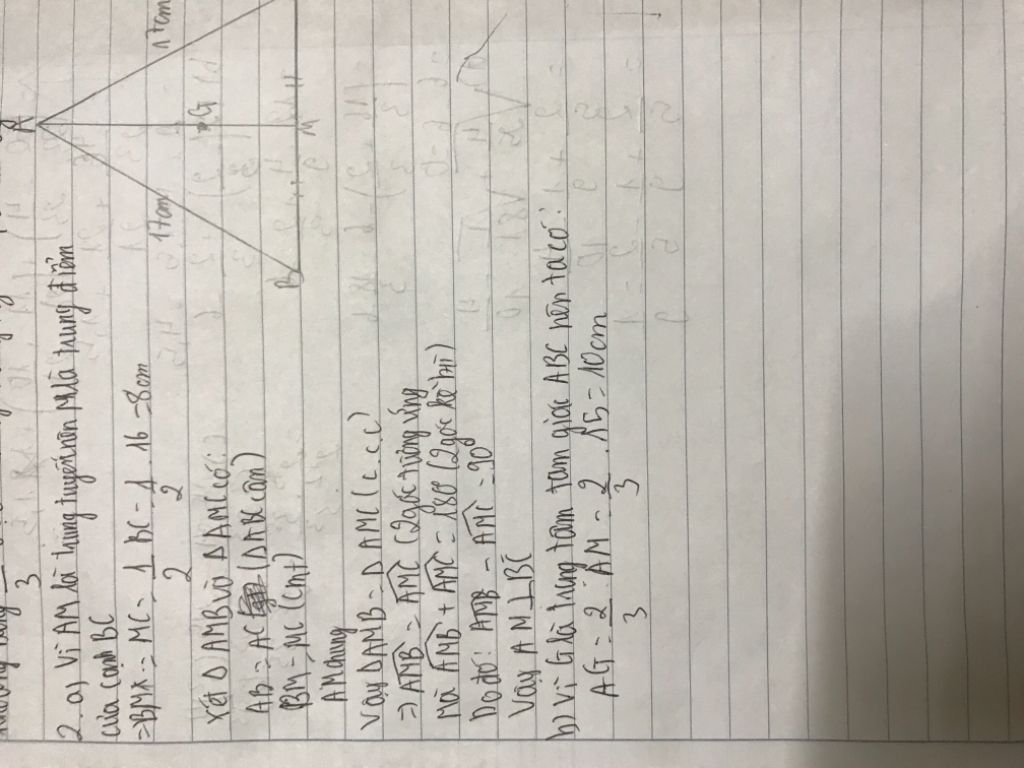 3
2. a) Vì AM là trung tuyến nên M là trung điểm
của cạnh BC
=> BM = MC = 1/2 BC = 1/2 . 16 = 8cm
Xét Δ AMB và Δ AMC có:
AB = AC (Δ ABC cân)
BM = MC (cmt)
AM chung
Vậy Δ AMB = Δ AMC (c.c.c)
=> AMB = AMC (2 góc tương ứng
Mà AMB + AMC = 180° (2 góc kề bù)
Do đó: AMB = AMC = 90°
Vậy AM ⊥ BC
b) Vì G là trung tâm tam giác ABC nên ta có:
AG = 2/3 AM = 2/3 . 15 = 10cm
A
17cm
17cm
G
M
B